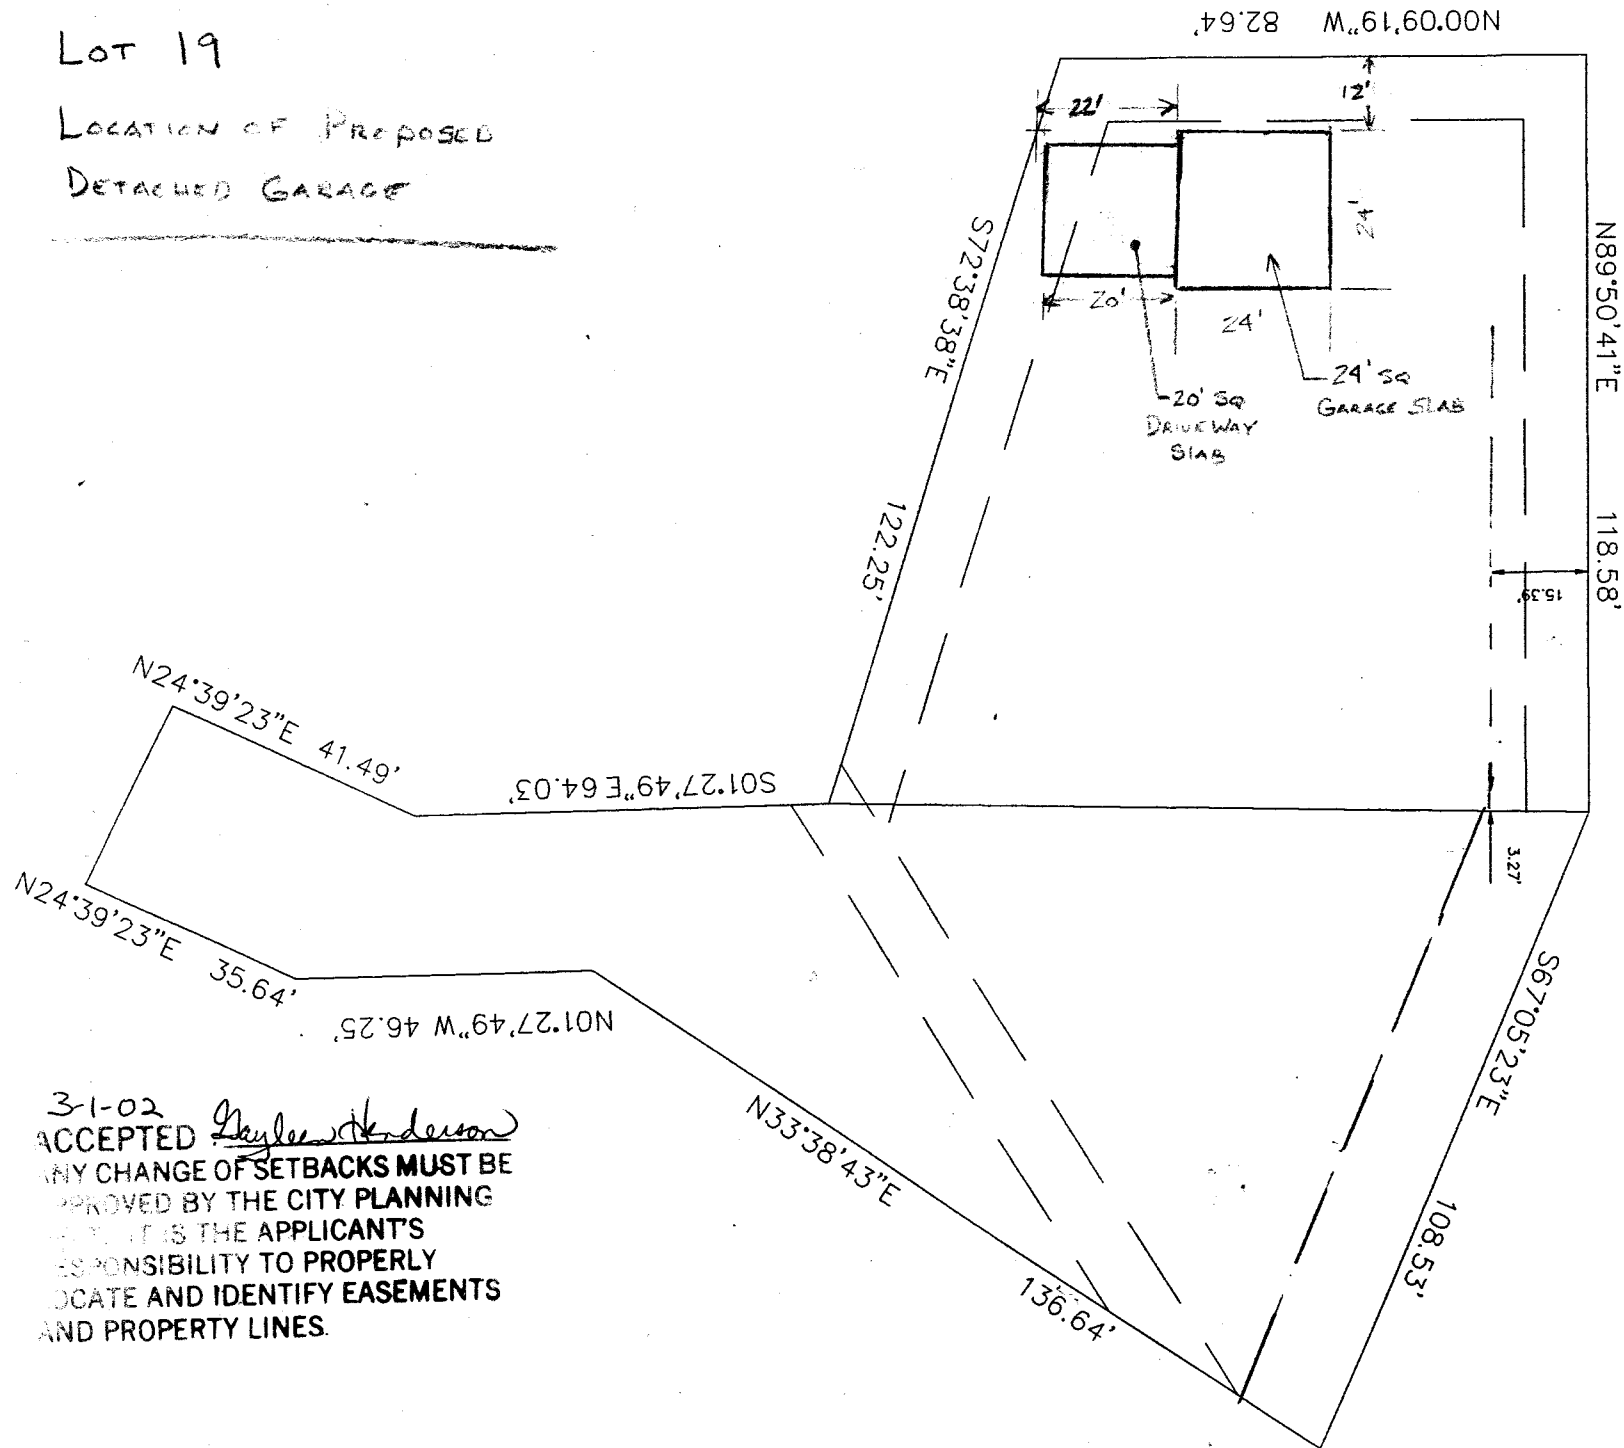 LOT 19
LOCATION OF PROPOSED
DETACHED GARAGE
N00°09'19"W 82.64'
12'
22'
24'
20'
24'
N89°50'41"E 118.58'
S72°38'38"E 122.25'
24' SQ
GARAGE SLAB
20' SQ
DRIVEWAY
SLAB
15.39'
N24°39'23"E 41.49'
S01°27'49"E 64.03'
3.27'
N24°39'23"E 35.64'
N01°27'49"W 46.25'
S67°05'23"E 108.53'
N33°38'43"E 136.64'
3-1-02
ACCEPTED Gayleen Henderson
ANY CHANGE OF SETBACKS MUST BE
APPROVED BY THE CITY PLANNING
IT IS THE APPLICANT'S
RESPONSIBILITY TO PROPERLY
LOCATE AND IDENTIFY EASEMENTS
AND PROPERTY LINES.